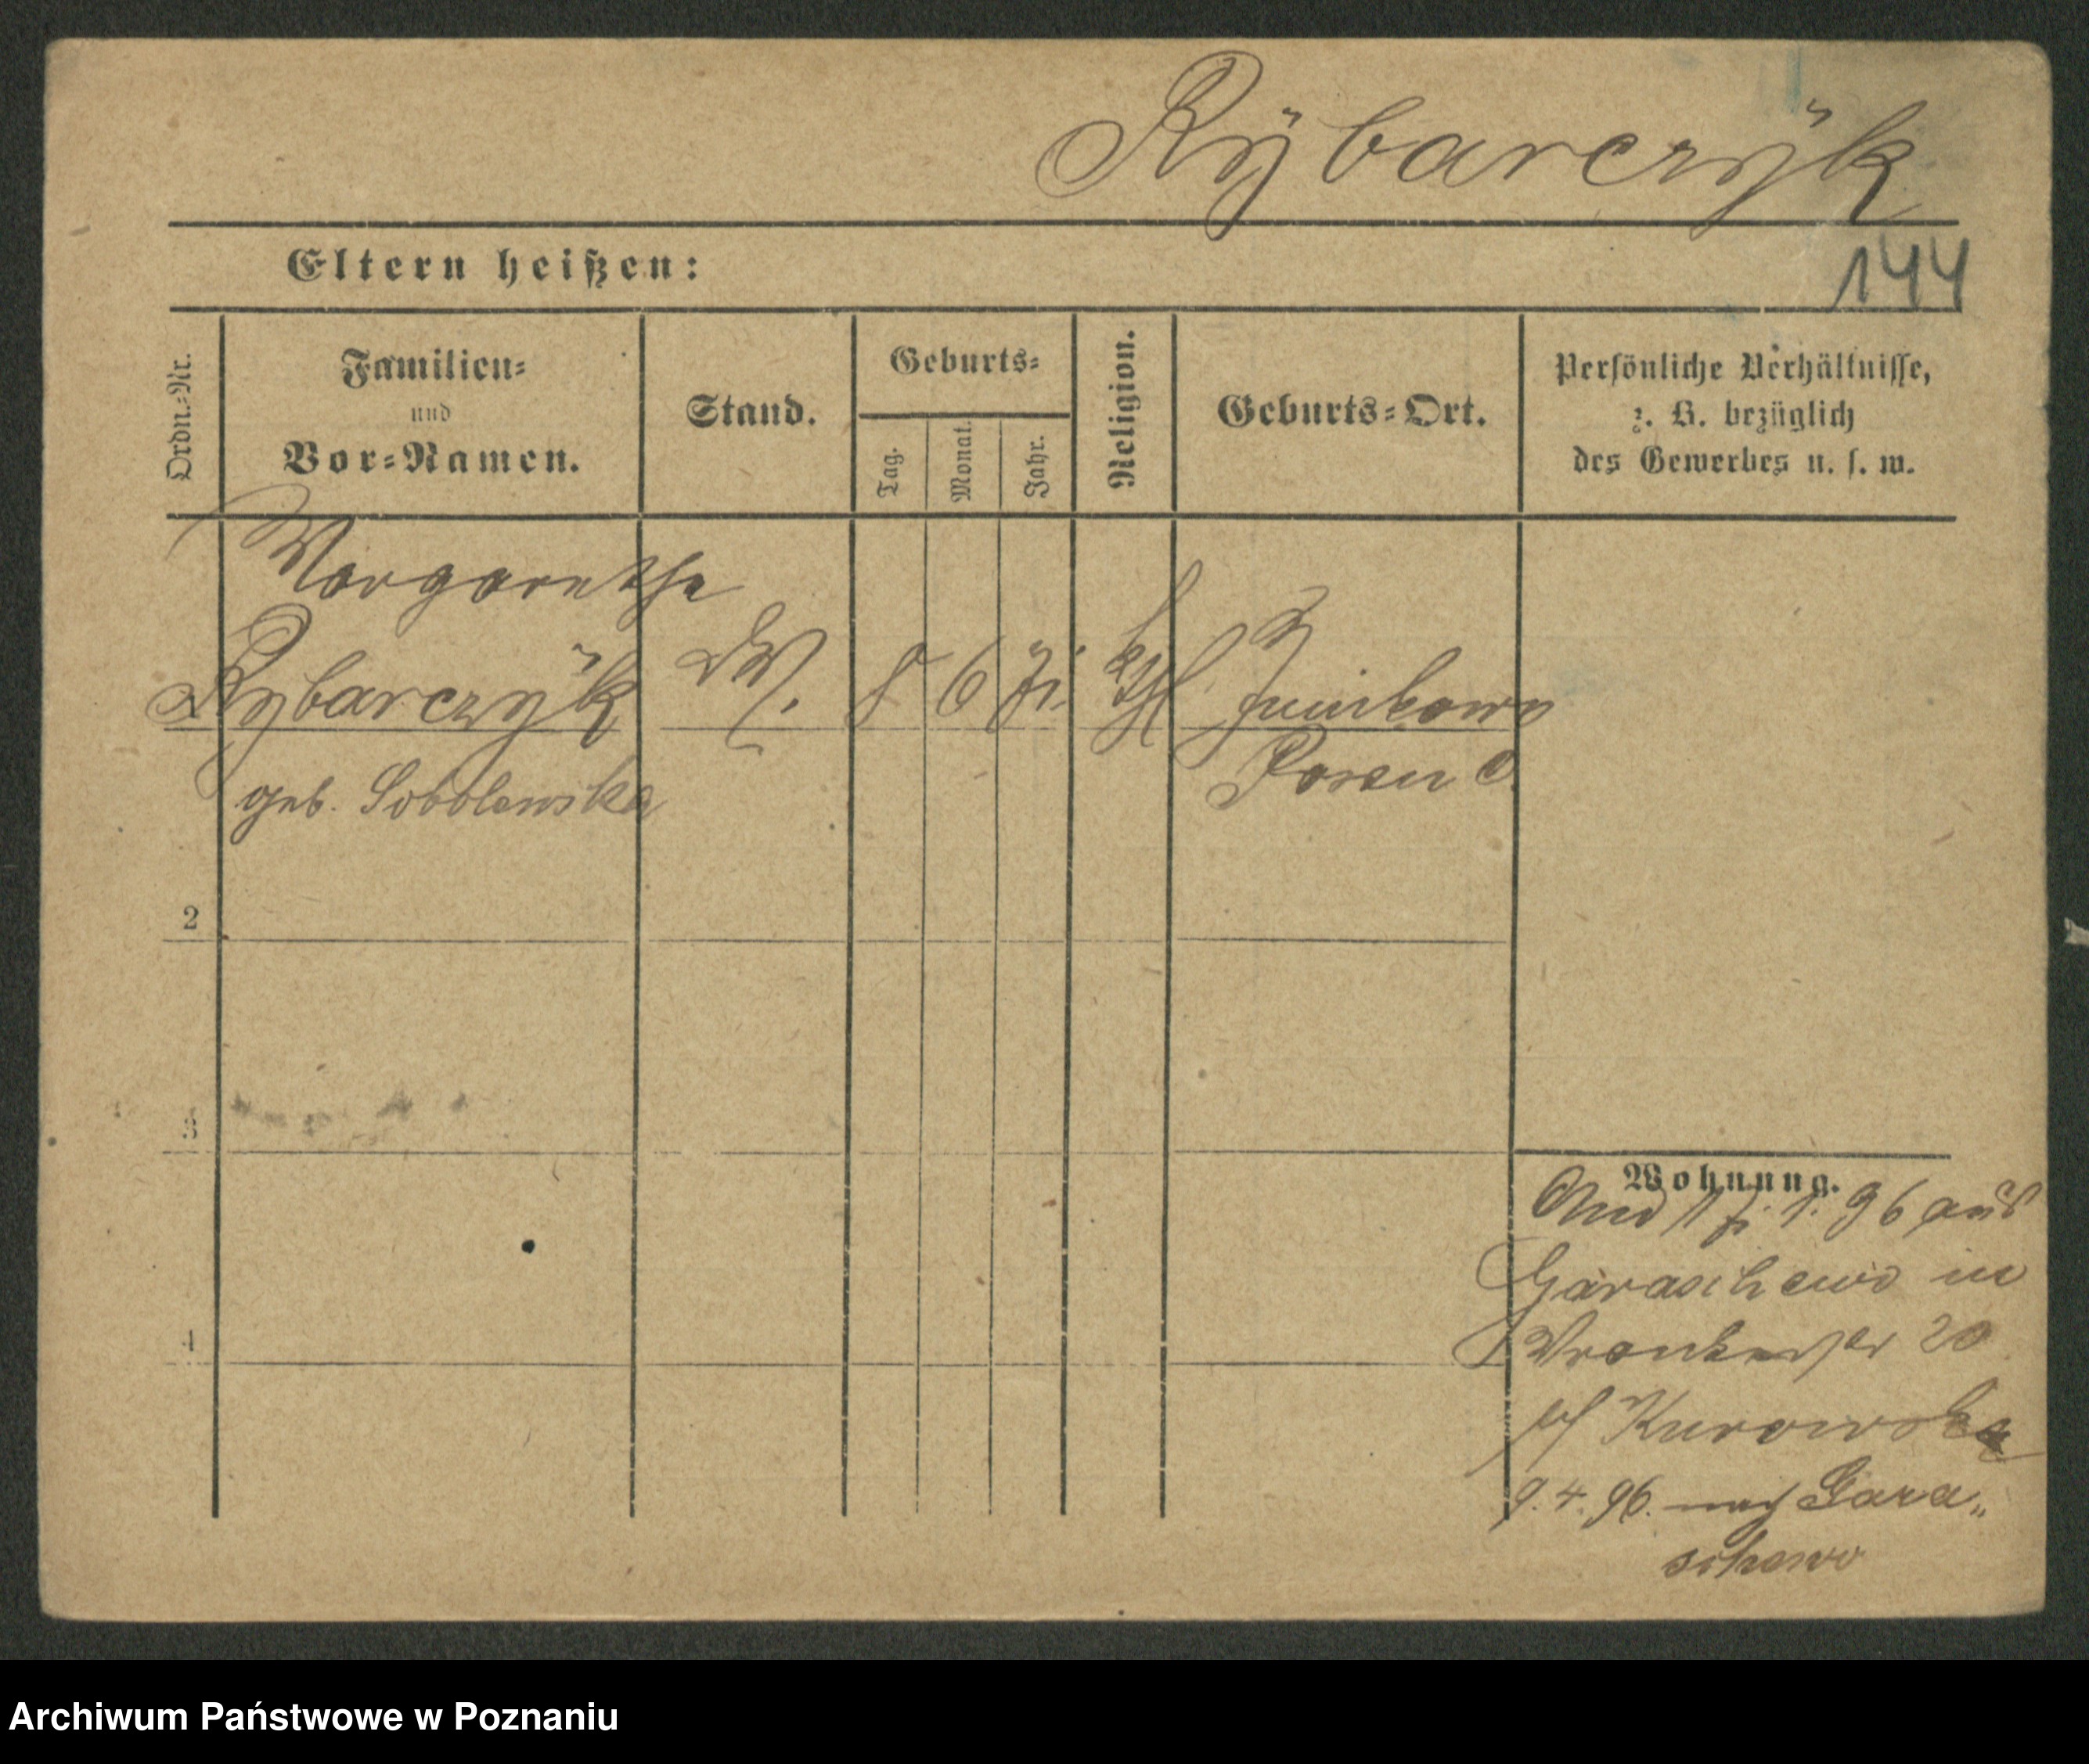 Rÿbarczÿk
Eltern heißen:
144
Ordn.-Nr.
Familien-
und
Vor-Namen.
Stand.
Geburts-
Tag.
Monat.
Jahr.
Religion.
Geburts-Ort.
Persönliche Verhältnisse,
z. B. bezüglich
des Gewerbes u. s. w.
Margarethe
Rybarczÿk
8 6 71. kthl Junikowo
Posen O.
geb. Sobolewska
2
3
Wohnung.
1. 96 aus
Garaschewo in
4
Wronkerstr 20
b/ Kurowska
9. 4. 96. nach Gara„
schewo
Archiwum Państwowe w Poznaniu